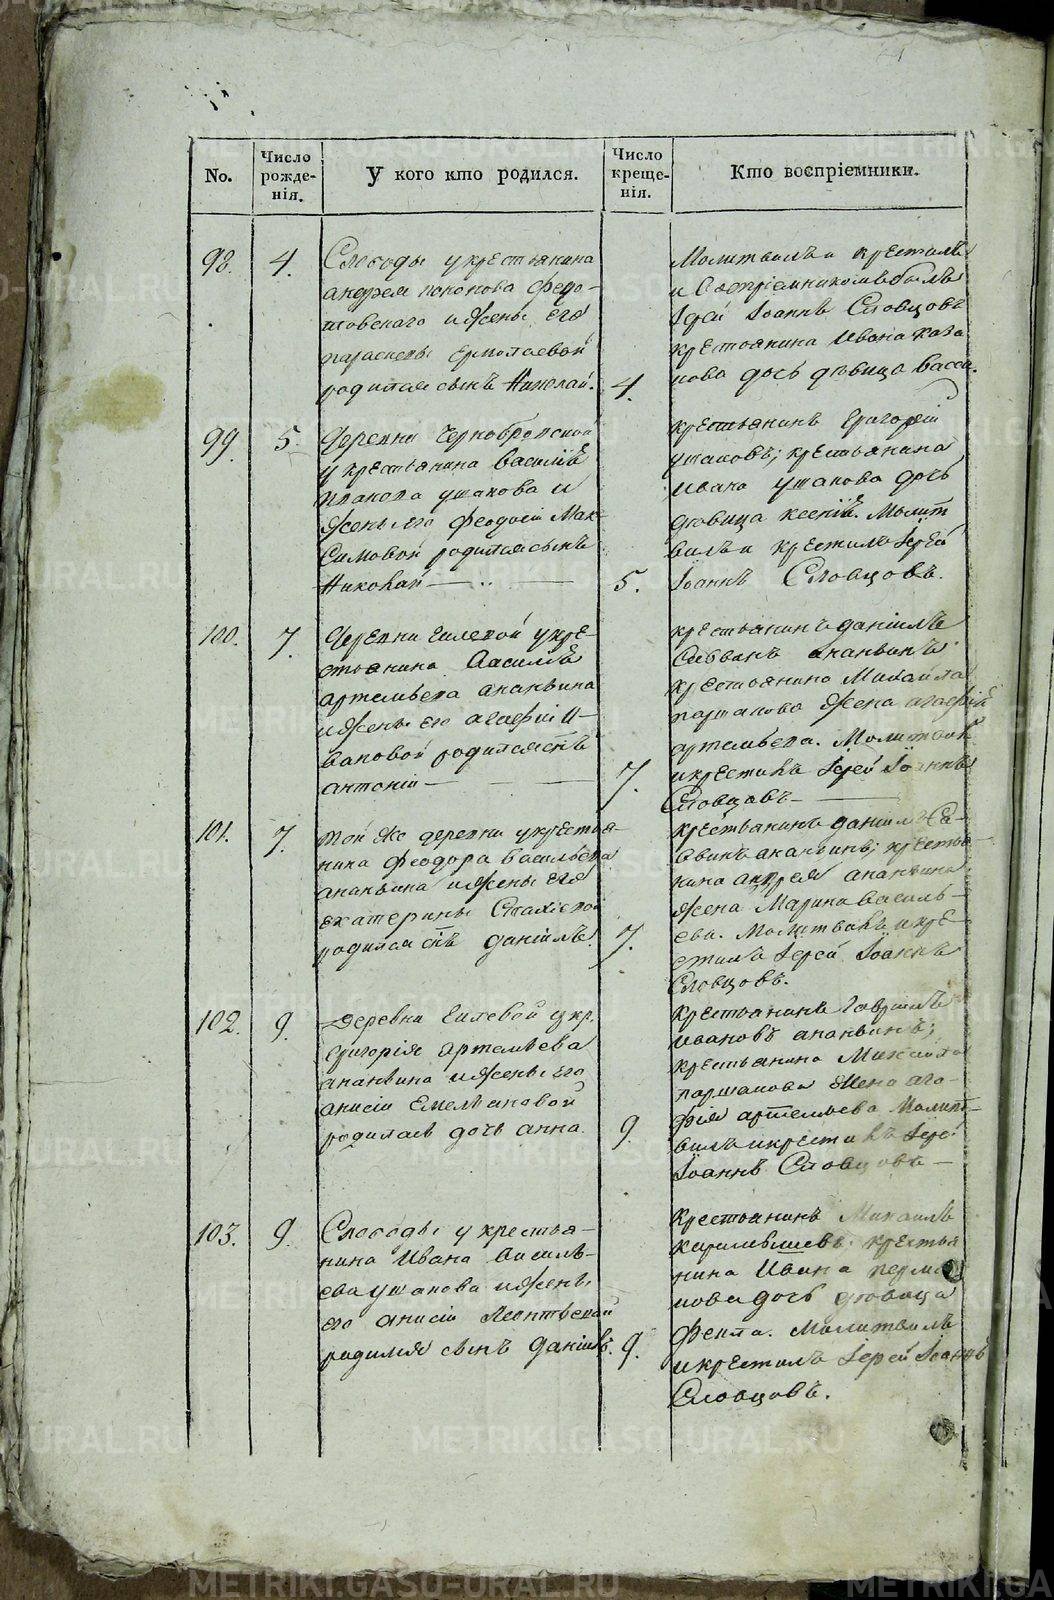 No.
Число рожде-нія.
У кого кто родился.
Число креще-нія.
Кто воспріемники.
98.
4.
Слободы укрестьянина
андрея кононова Федо-
товскаго и жены его
параскевы ермолаевой
родился сынъ Николай.
4.
Молитвилъ и крестилъ
и Воспріемникомъ былъ
Іерей Іоаннъ Словцовъ
крестьянина Ивана каза
кова дочь дѣвица васса.
99.
5.
Деревни Чернобровской
укрестьянина Василія
ушакова и
жены его феодосіи Мак-
Симовой родился сынъ
Николай
5.
крестьянинъ Григорей
ушаковъ; крестьянина
Ивана ушакова дочь
дѣвица ксенія. Молит
вилъ и крестилъ Іерей
Іоаннъ Словцовъ.
100.
7.
Деревни Гилевой укре-
стьянина Василія
артемьева ананьина
и жены его агафіи И-
вановой родился снъ
антоній
7.
крестьянинъ даніилъ
ананьинъ
крестьянина Михаила
паршакова жена агафія
артемьева. Молитвилъ
и крестилъ Іерей Іоаннъ
Словцовъ
101.
7.
той же деревни укрестья-
нина феодора васильева
ананьина и жены его
екатерины
родился снъ даніилъ.
7.
крестьянинъ даніилъ Са-
ананьинъ; крестья
нина андрея ананьина
жена Марина василь-
ева. Молитвилъ и кре-
стилъ Іерей Іоаннъ
Словцовъ.
102.
9.
Деревни Гилевой у кр.
григорія артемьева
ананьина и жены его
анисіи Емельяновой
родилась дочь анна.
9.
крестьянинъ Гавріилъ
ивановъ ананьинъ;
крестьянина Михаила
паршакова жена ага-
фія артемьева Молит-
вилъ и крестилъ Іерей
Іоаннъ Словцовъ
103.
9.
Слободы у крестья-
нина Ивана Василь-
ева ушакова и жены
его анисіи Леонтьевой
родился сынъ даніилъ.
9.
Крестьянинъ Михаилъ
крестья
нина Ивана
нова дочь дѣвица
фекла. Молитвилъ
и крестилъ Іерей Іоаннъ
Словцовъ.
METRIKI.GASO-URAL.RU